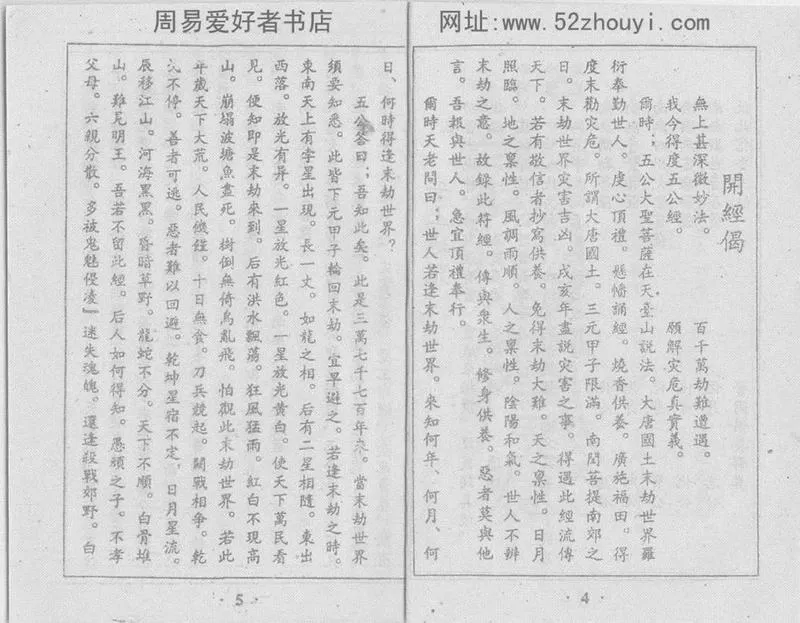 周易爱好者书店
网址:www.52zhouyi.com
開經偈
無上甚深微妙法。 百千萬劫難遭遇。
我今得度五公經。 願解灾危真實義。
爾時；五公大聖菩薩在天臺山説法。大唐國土末劫世界羅
衍奉勤世人。虔心頂禮。懸幡誦經。燒香供養。廣施福田。得
度末勸灾危。所謂大唐國土。三元甲子限滿。南閻菩提南郊之
日。末劫世界灾害吉凶。戌亥年盡説灾害之事。得遇此經流傳
天下。若有敬信者抄寫供養。免得末劫大難。天之稟性。日月
照臨。地之稟性。風調雨順。人之稟性。陰陽和氣。世人不辨
末劫之意。故錄此符經。傳與衆生。修身供養。惡者莫與他
言。吾報與世人。急宜頂禮奉行。
爾時天老問曰；世人若逢末劫世界。來知何年、何月、何
·4·
日、何時得逢末劫世界？
五公答曰；吾知此矣。此是三萬七千七百年來。當末劫世界
須要知悉。此皆下元甲子輪回末劫。宜早避之。若逢末劫之時。
東南天上有孛星出現。長一丈。如龍之相。后有二星相隨。東出
西落。放光有异。一星放光紅色。一星放光黄白。使天下萬民看
見。便知即是末劫來到。后有洪水飄蕩。狂風猛雨。紅白不現高
山。崩塌波塘魚盡死。樹倒無倚鳥亂飛。怕觀此末劫世界。若此
年歲天下大荒。人民饑饉。十日無食。刀兵競起。鬪戰相争。乾
不停。善者可逃。惡者難以回避。乾坤星宿不定，日月星流。
辰移江山。河海黑黑。昏暗草野。龍蛇不分。天下不順。白骨堆
山。難見明王。吾若不留此經。后人如何得知。愚頑之子。不孝
父母。六親分散。多被鬼魅侵凌』迷失魂魄。還逢殺戰郊野。白
·5·